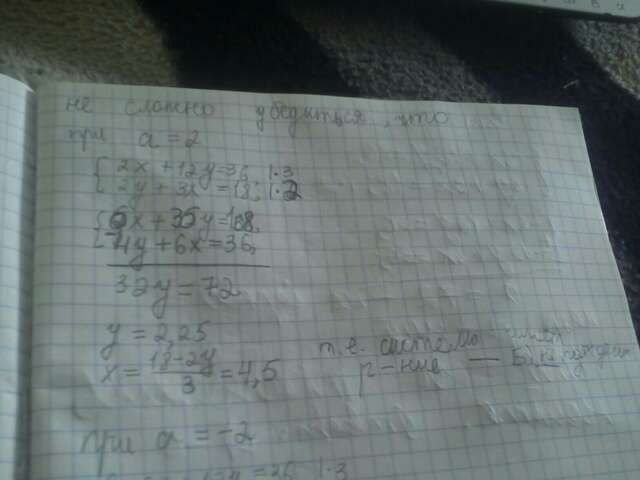 не сложно убедиться, что
при a = 2
{ 2x + 12y = 36, | · 3
2y + 3x = 18; | · 2
{ 6x + 35y = 108,
4y + 6x = 36,
32y = 72
y = 2,25
x = (18 - 2y) / 3 = 4,5
т.е. система
р-ние —
при a = -2
= 36 | · 3